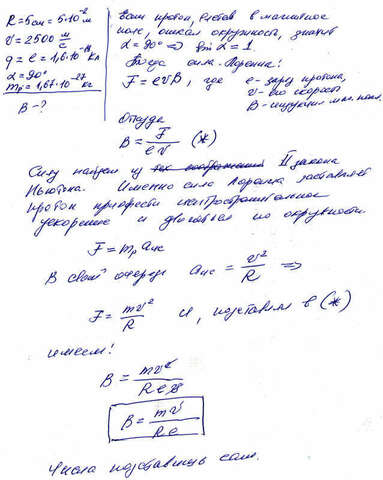 R = 5см = 5·10⁻² м
V = 2500 м/с
q = e = 1,6·10⁻¹⁹ Кл
α = 90°
mₚ = 1,67·10⁻²⁷ кг
B - ?
Если протон, влетев в магнитное
поле, описал окружность, значит
α = 90° => sin α = 1.
Тогда сила Лоренца:
F = evB, где e - заряд протона,
v - его скорость
B - индукция маг. поля.
Откуда
B = F/ev (*)
Силу найдем из II закона
Ньютона. Именно сила Лоренца заставляет
протон приобрести центростремительное
ускорение и двигаться по окружности.
F = mₚ aцс
В свою очередь aцс = v²/R =>
F = mv²/R и, подставляя в (*)
имеем:
B = mv²/Rev
B = mv/Re
Числа подставишь сам.